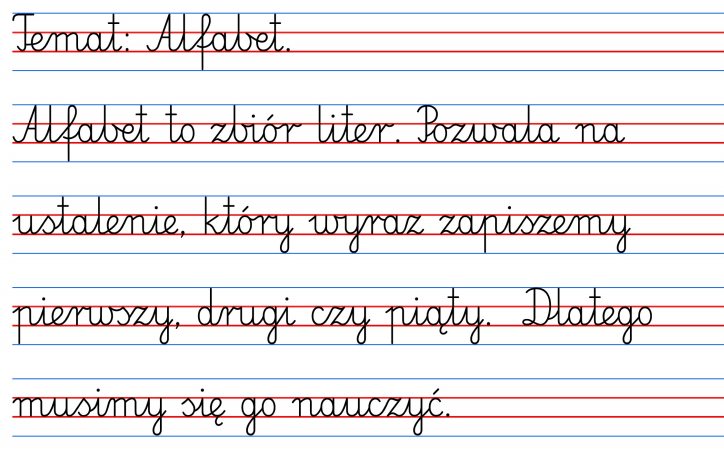 Temat: Alfabet.
Alfabet to zbiór liter. Pozwala na
ustalenie, który wyraz zapiszemy
pierwszy, drugi czy piąty. Dlatego
musimy się go nauczyć.